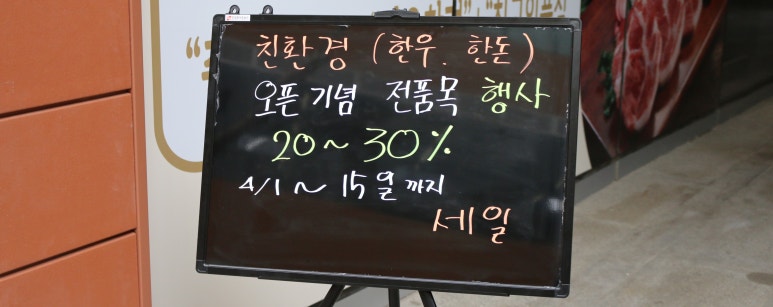 친환경 (한우. 한돈)
오픈 기념 전품목 행사
20~30%
4/1~15일까지
세일